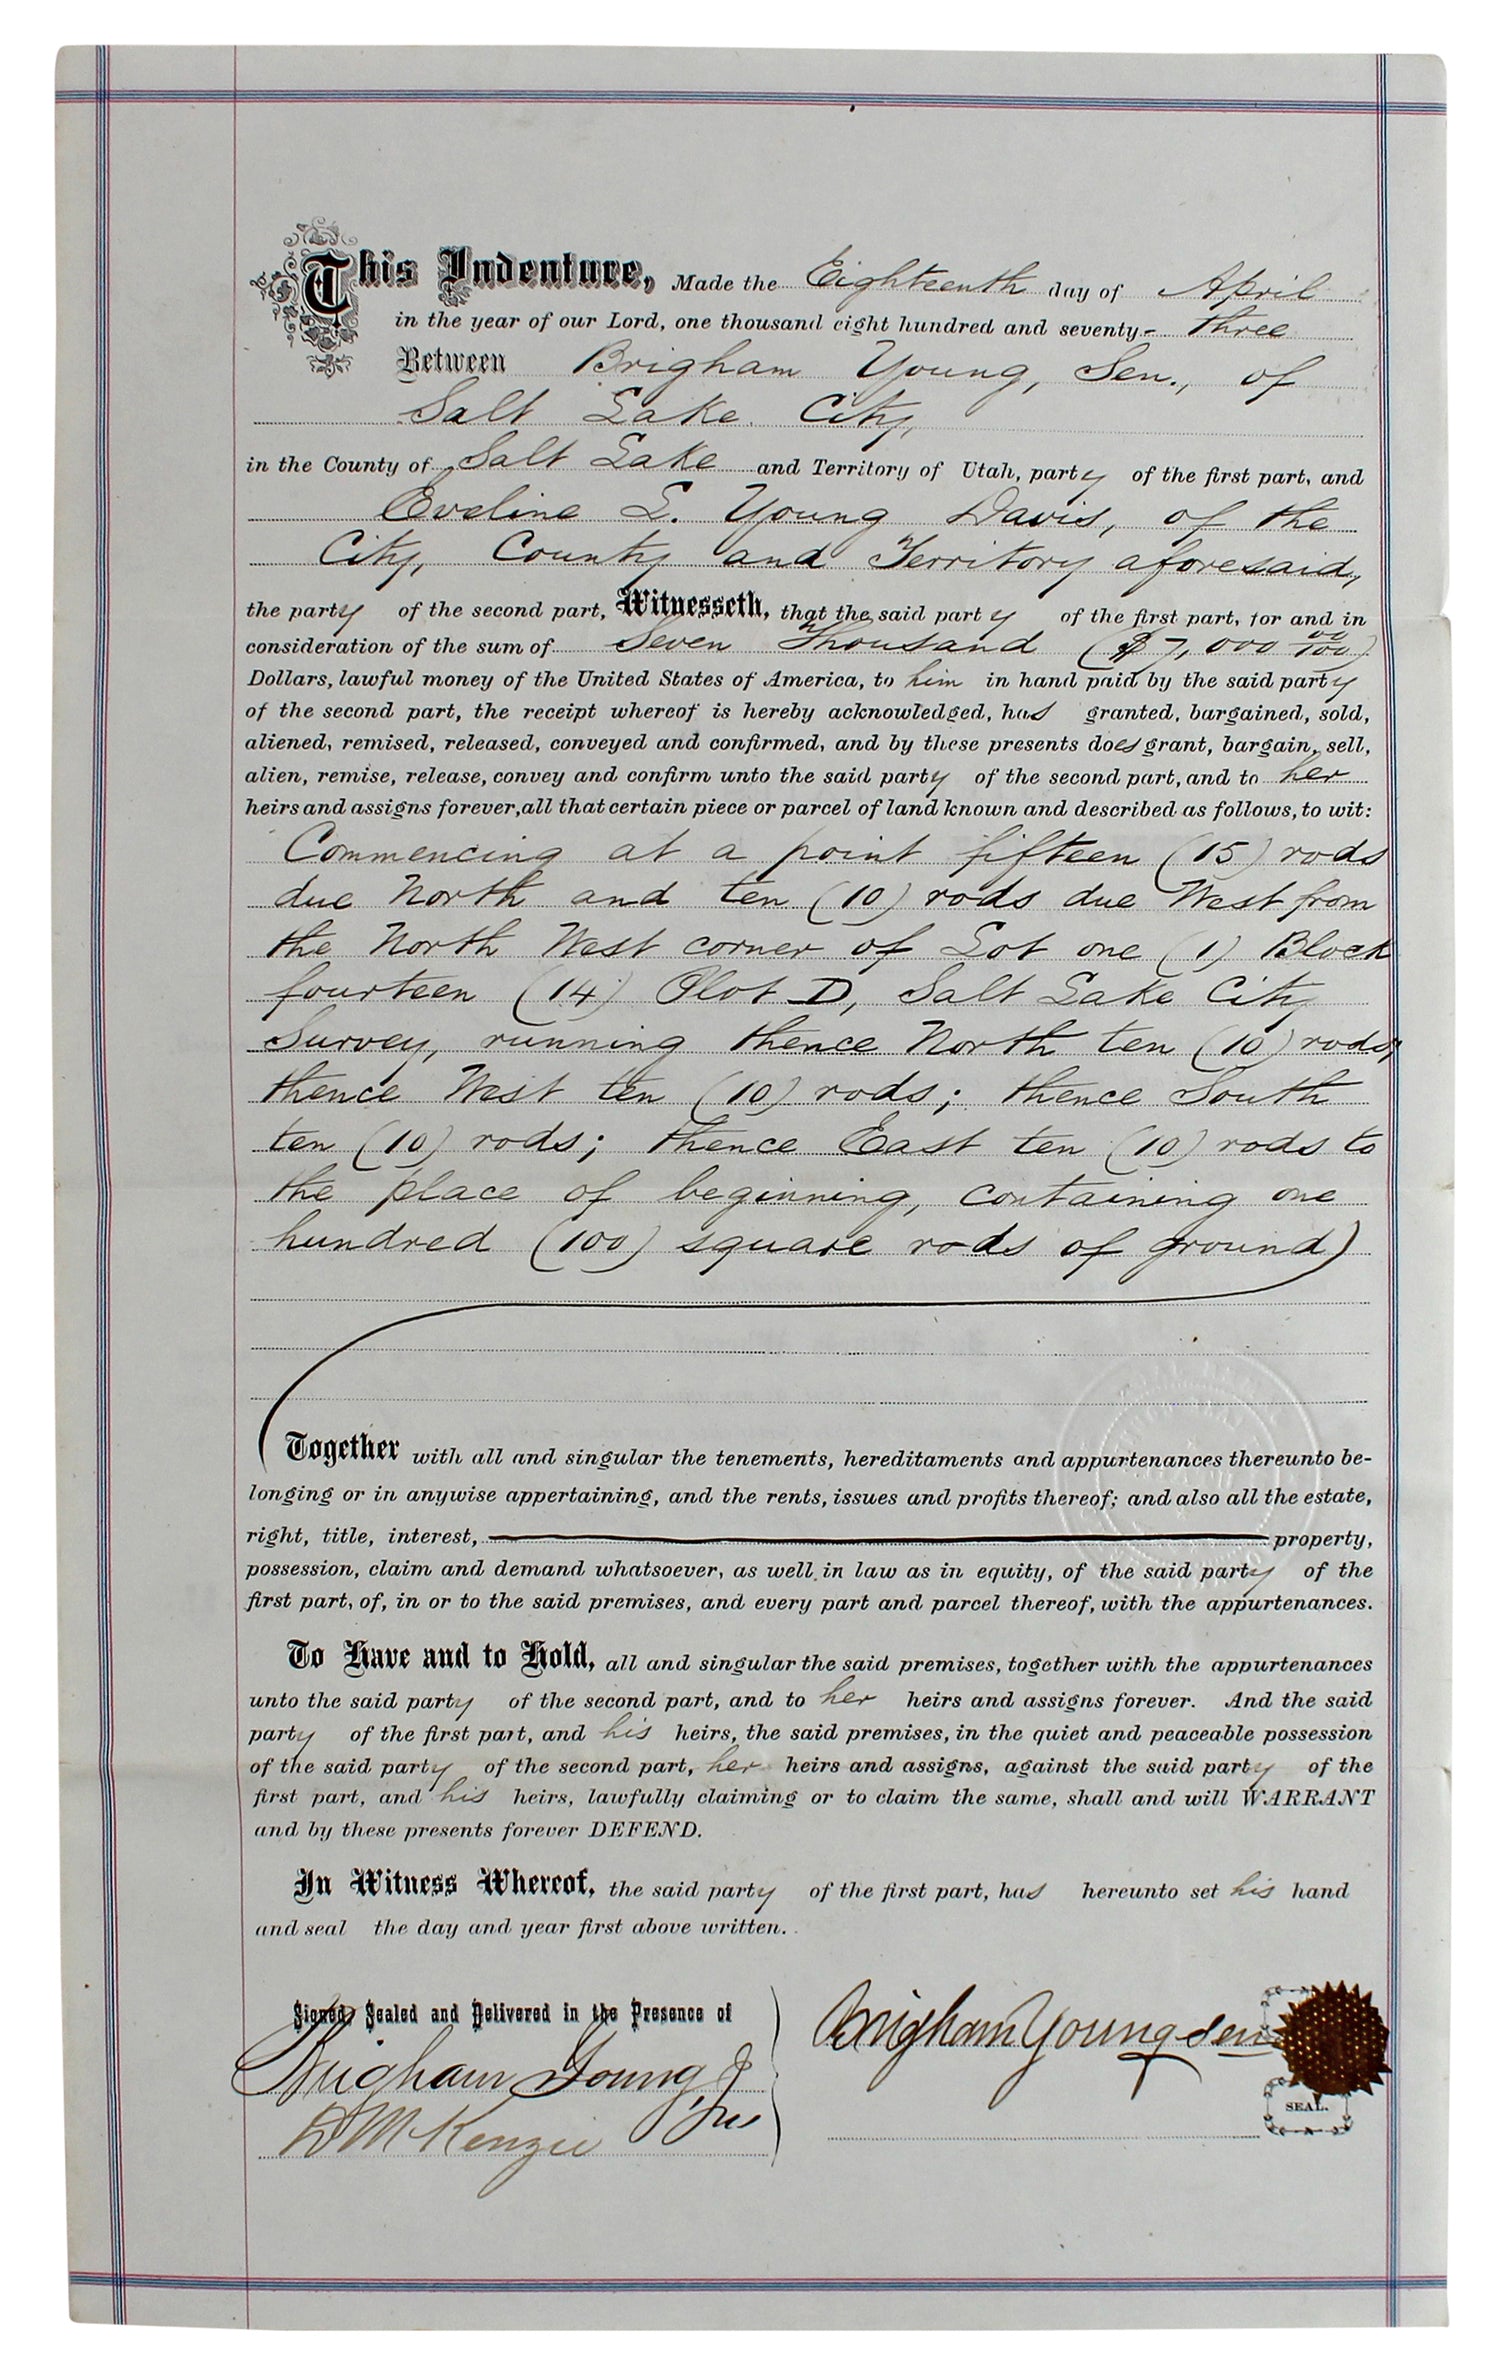 This Indenture, Made the Eighteenth day of April
in the year of our Lord, one thousand eight hundred and seventy- three
Between Brigham Young, Sen., of
Salt Lake City,
in the County of Salt Lake and Territory of Utah, party of the first part, and
Eveline L. Young Davis, of the
City, County and Territory aforesaid,
the party of the second part, Witnesseth, that the said party of the first part, for and in
consideration of the sum of Seven Thousand ($7,000 00/100)
Dollars, lawful money of the United States of America, to him in hand paid by the said party
of the second part, the receipt whereof is hereby acknowledged, has granted, bargained, sold,
aliened, remised, released, conveyed and confirmed, and by these presents does grant, bargain, sell,
alien, remise, release, convey and confirm unto the said party of the second part, and to her
heirs and assigns forever, all that certain piece or parcel of land known and described as follows, to wit:
Commencing at a point fifteen (15) rods
due North and ten (10) rods due West from
the North West corner of Lot one (1) Block
fourteen (14) Plot D, Salt Lake City
Survey, running thence North ten (10) rods;
thence West ten (10) rods; thence South
ten (10) rods; thence East ten (10) rods to
the place of beginning, containing one
hundred (100) square rods of ground)
Together with all and singular the tenements, hereditaments and appurtenances thereunto be-
longing or in anywise appertaining, and the rents, issues and profits thereof; and also all the estate,
right, title, interest, property,
possession, claim and demand whatsoever, as well in law as in equity, of the said party of the
first part, of, in or to the said premises, and every part and parcel thereof, with the appurtenances.
To Have and to Hold, all and singular the said premises, together with the appurtenances
unto the said party of the second part, and to her heirs and assigns forever. And the said
party of the first part, and his heirs, the said premises, in the quiet and peaceable possession
of the said party of the second part, her heirs and assigns, against the said party of the
first part, and his heirs, lawfully claiming or to claim the same, shall and will WARRANT
and by these presents forever DEFEND.
In Witness Whereof, the said party of the first part, has hereunto set his hand
and seal the day and year first above written.
Signed, Sealed and Delivered in the Presence of
Brigham Young Sen
Brigham Young
Jr
D McKenzie
SEAL.